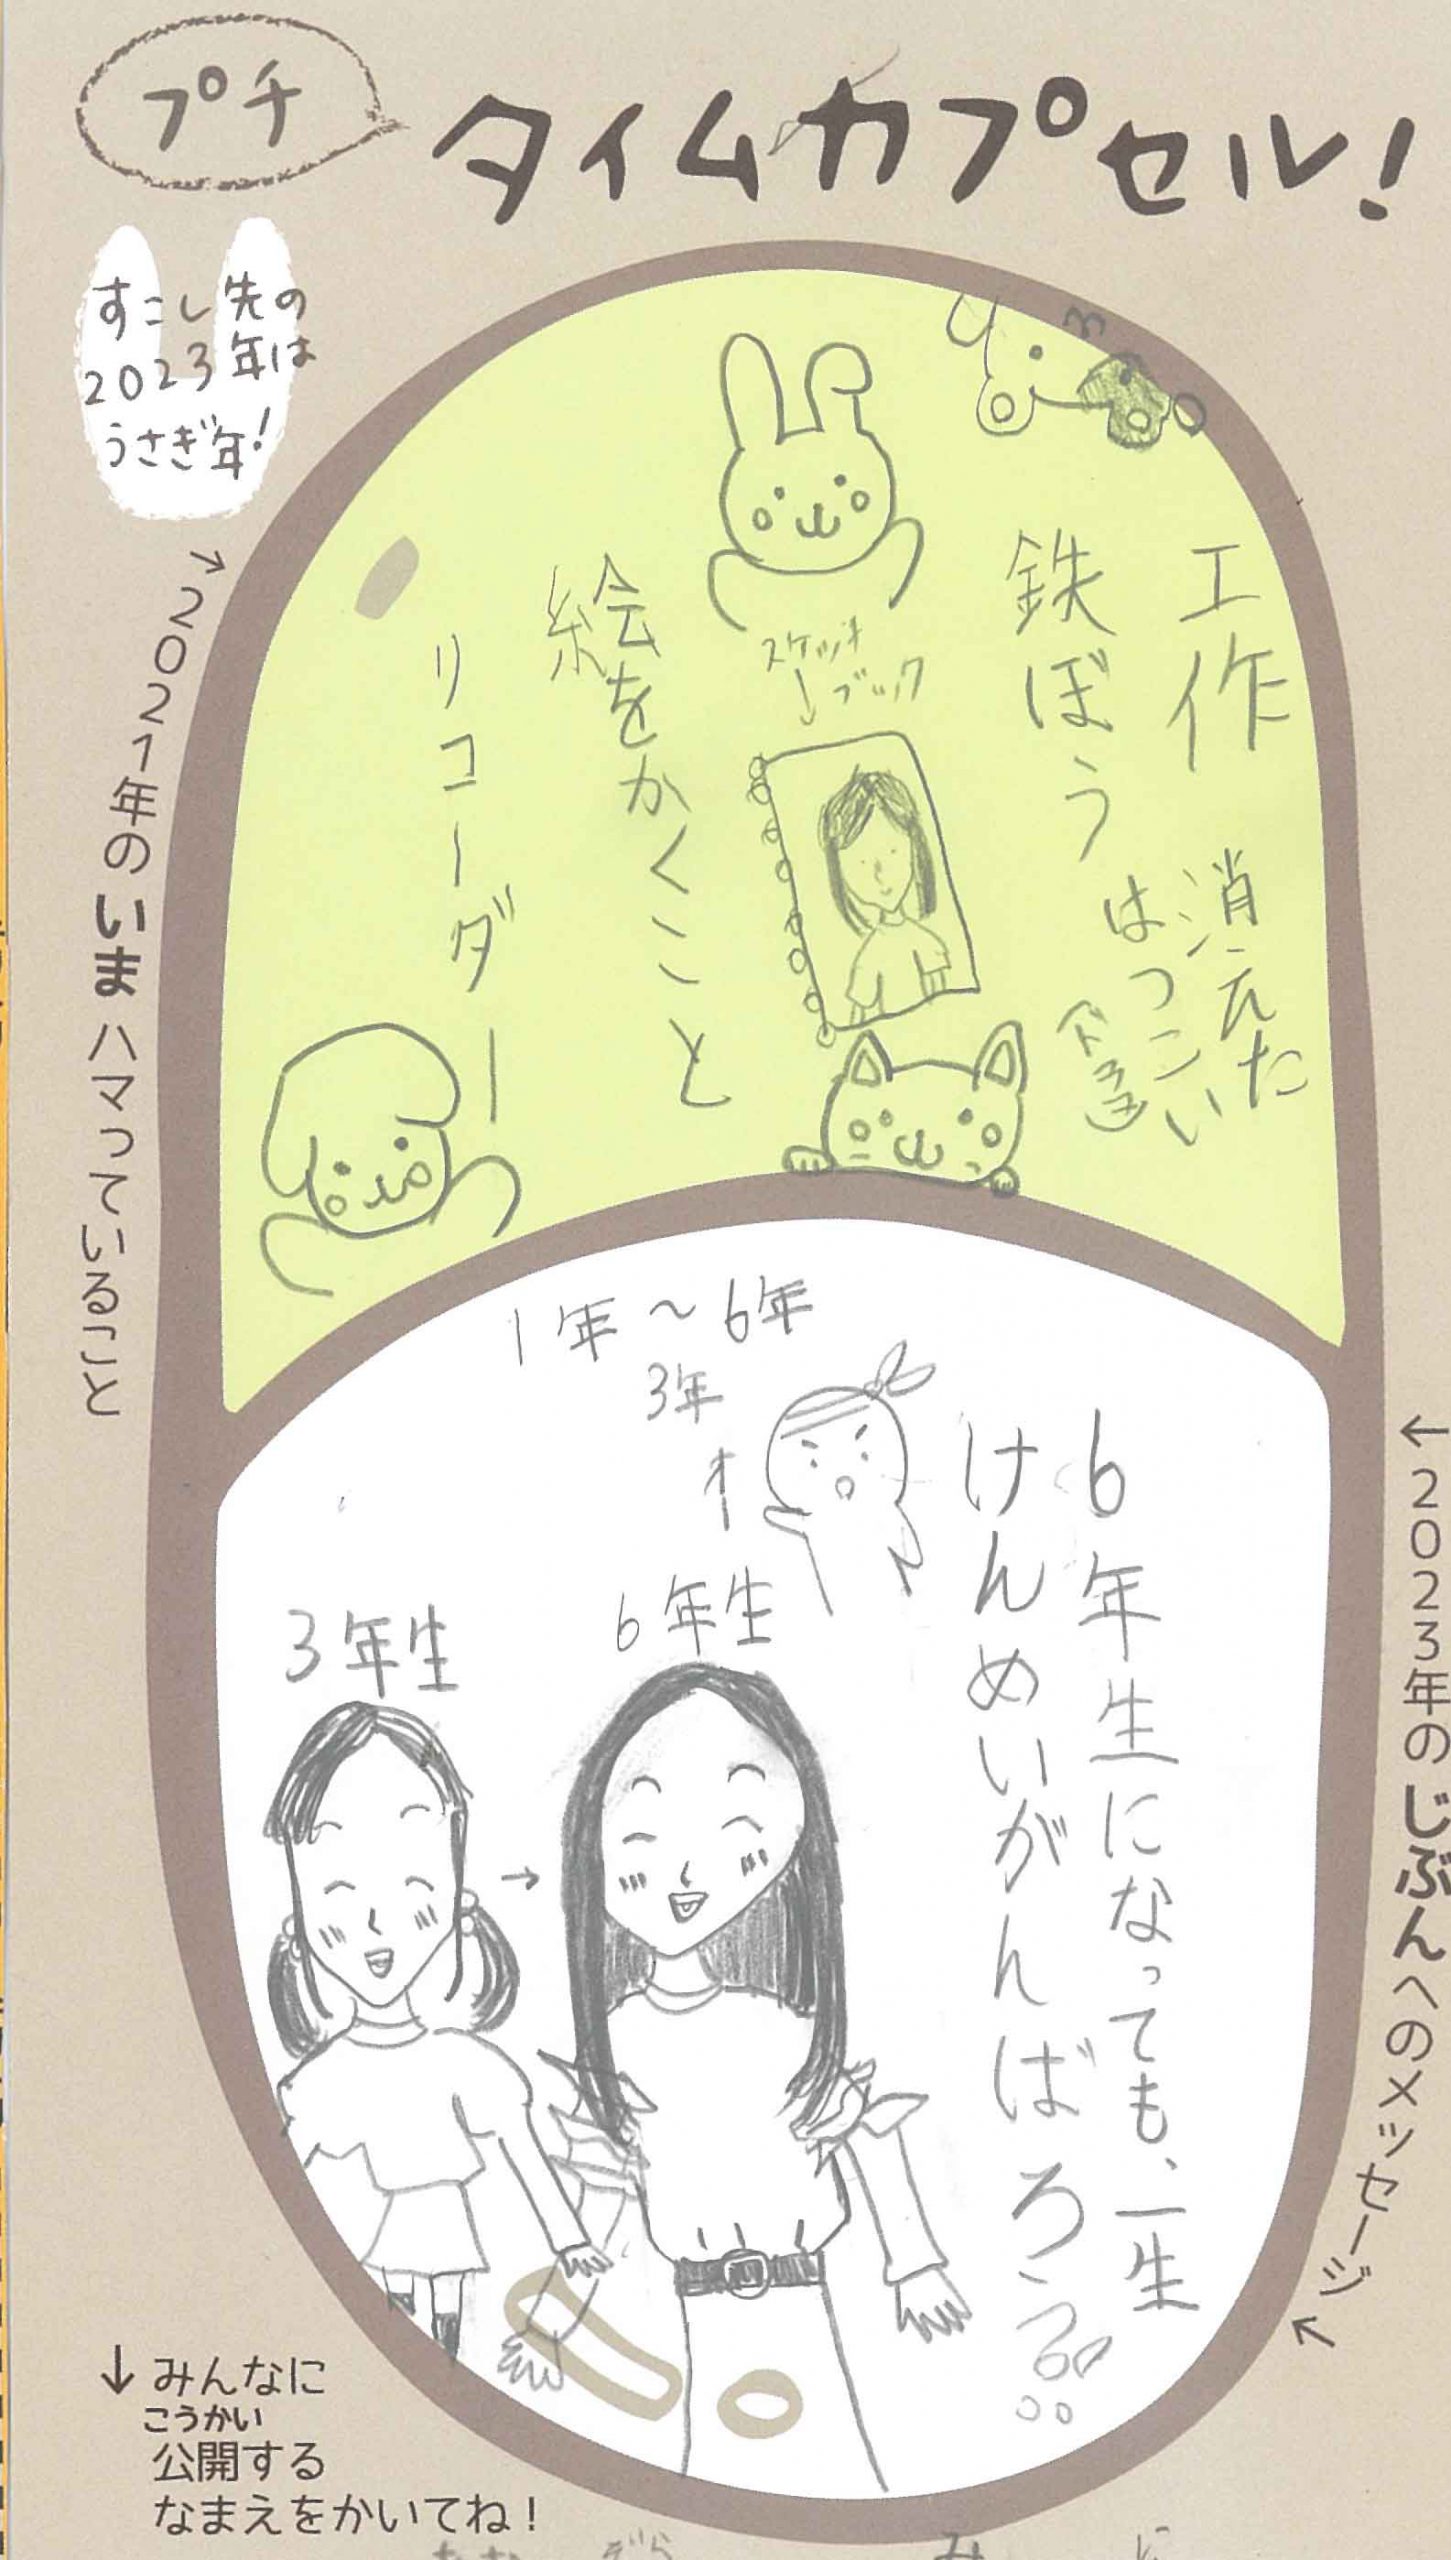 プチ
タイムカプセル!
すこし先の
2023年は
うさぎ年!
→2021年のいまハマっていること
工作
鉄ぼう
消えた
はつこい
スケッチ
ブック
絵をかくこと
リコーダー
←2023年のじぶんへのメッセージ
1年~6年
3年
6年生になっても、一生
けんめいがんばろう
6年生
3年生
↓みんなに
こうかい
公開する
なまえをかいてね!